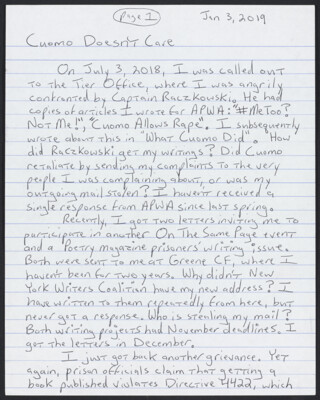 Page 1
Jan 3, 2019
Cuomo Doesn't Care
On July 3, 2018, I was called out
to the Tier Office, where I was angrily
confronted by Captain Raczkowski. He had
copies of articles I wrote for APWA: "#MeToo?
Not Me!", "Cuomo Allows Rape". I subsequently
wrote about this in "What Cuomo Did". How
did Raczkowski get my writings? Did Cuomo
retaliate by sending my complaints to the very
people I was complaining about, or was my
outgoing mail stolen? I haven't received a
single response from APWA since last spring.
Recently, I got two letters inviting me to
participate in another On The Same Page event
and a Poetry magazine prisoners' writing issue.
Both were sent to me at Greene CF, where I
haven't been for two years. Why didn't New
York Writers Coalition have my new address? I
have written to them repeatedly from here, but
never got a response. Who is stealing my mail?
Both writing projects had November deadlines. I
got the letters in December.
I just got back another grievance. Yet
again, prison officials claim that getting a
book published violates Directive 4422, which